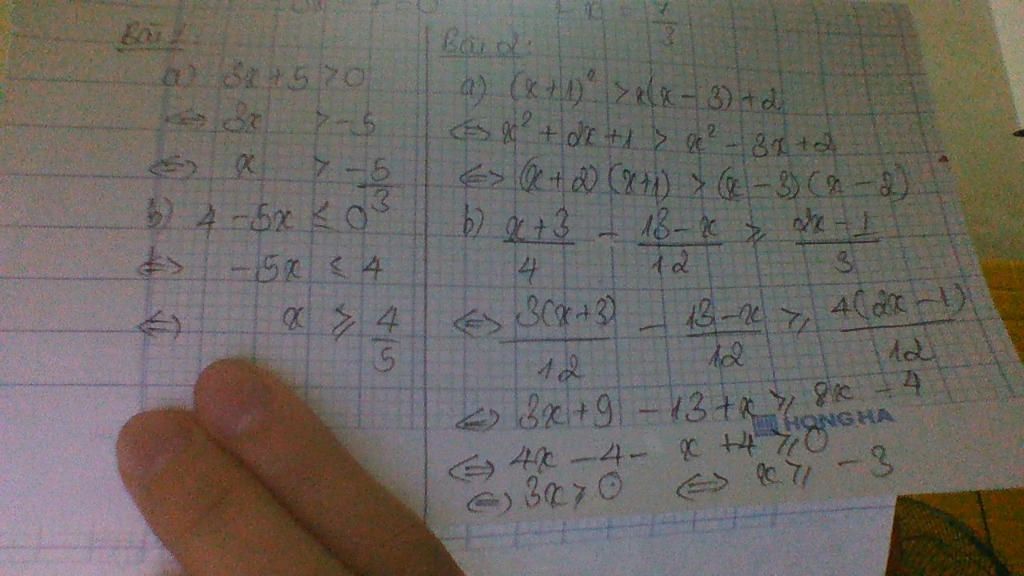 x = 7/3
Bài 1:
a) 3x + 5 > 0
⇔ 3x > -5
⇔ x > -5/3
b) 4 - 5x ≤ 0
⇔ -5x ≤ 4
⇔ x ≥ 4/5
Bài 2:
a) (x+1)² > x(x-3)+2
⇔ x² + 2x + 1 > x² - 3x + 2
⇔ (x+2)(x+1) > (x-3)(x-2)
b) x+3/4 - 13-x/12 ≥ 2x-1/3
⇔ 3(x+3)/12 - 13-x/12 ≥ 4(2x-1)/12
⇔ 3x + 9 - 13 + x ≥ 8x - 4
HONG HA
⇔ 4x - 4 - x + 4 ≥ 0
⇔ 3x > 0 ⇔ x ≥ -3